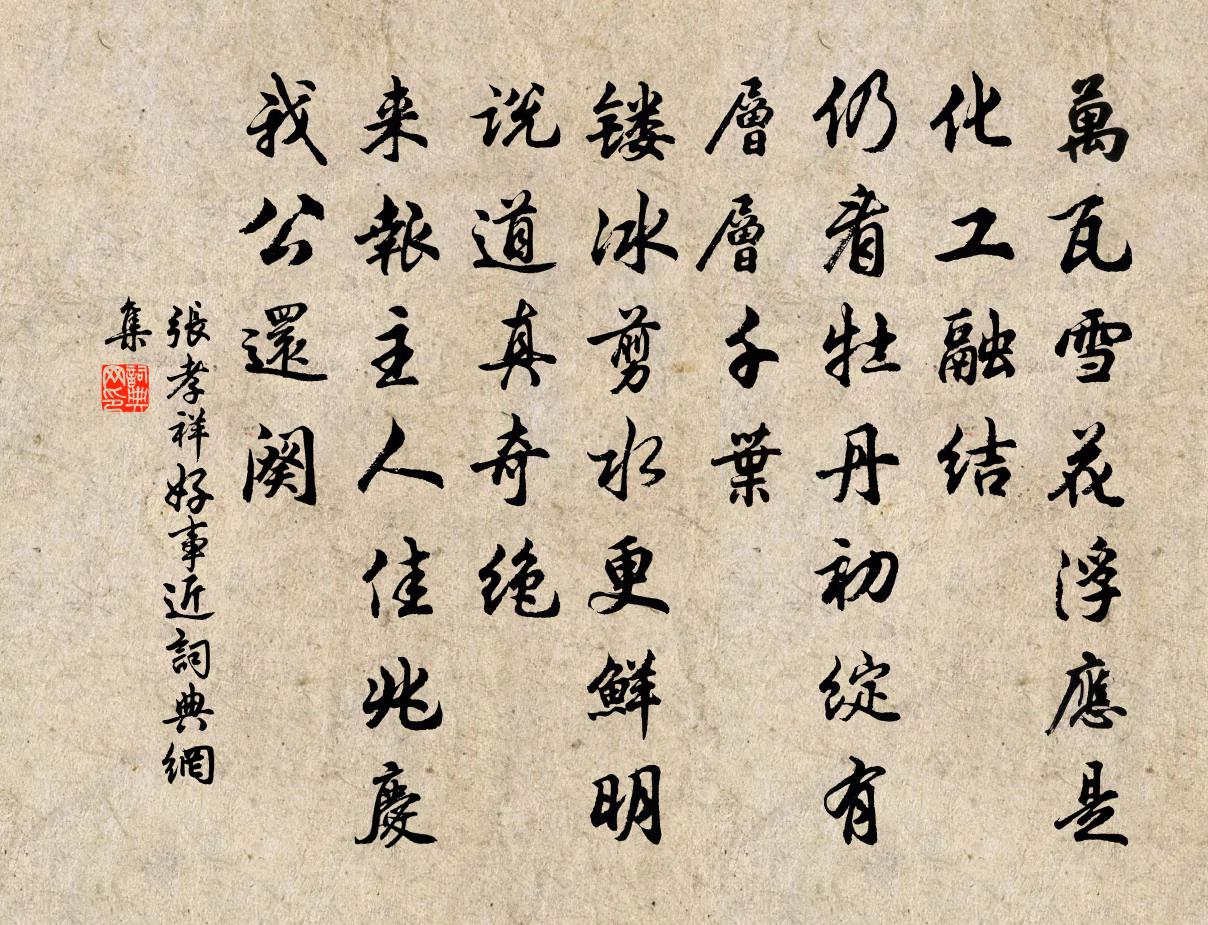 萬瓦雪花浮應是
化工融结
仍看牡丹初綻有
層層千葉
镂冰剪水更鮮明
说道真奇绝
来報主人佳兆慶
我公還闋
張孝祥好事近詞典網
集
詞典
网印